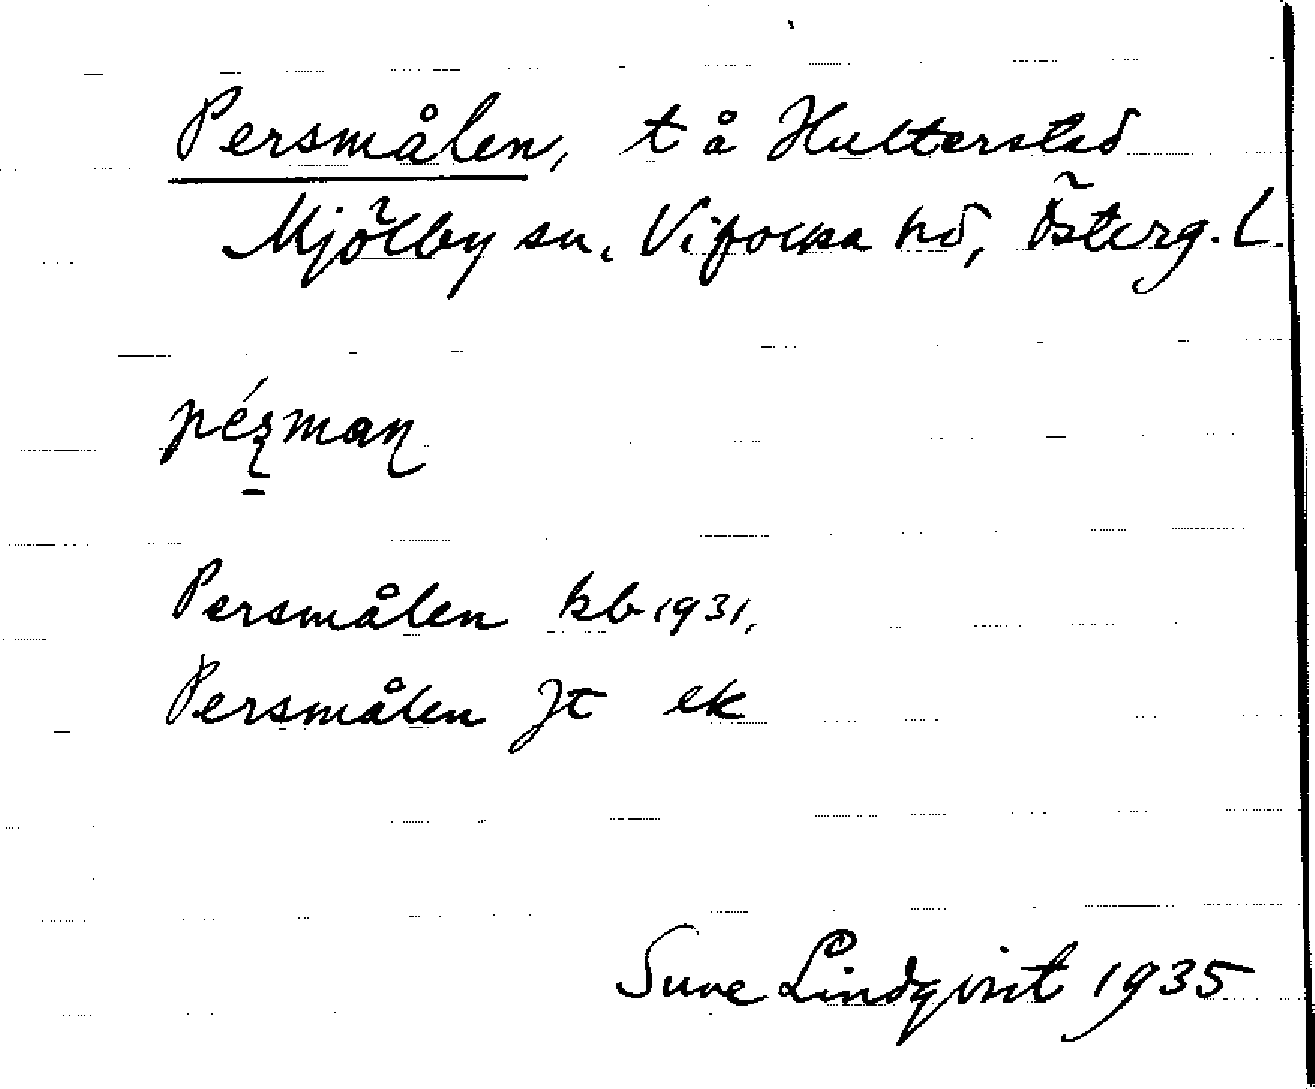 Persmålen, t å Hulterstad
Mjölby sn, Vifolka hd, Österg. L.
Persmålen kb 1931,
Persmålen Jt ek
Sune Lindqvist 1935